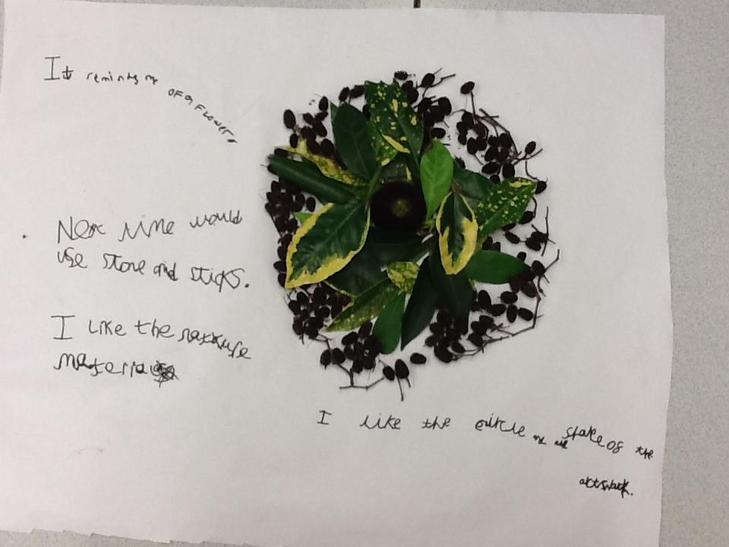 It reminds me of a flower,
Nex time would
use stone and sticks.
I like the natrure
materials
I like the circle and shape of the
artwork.